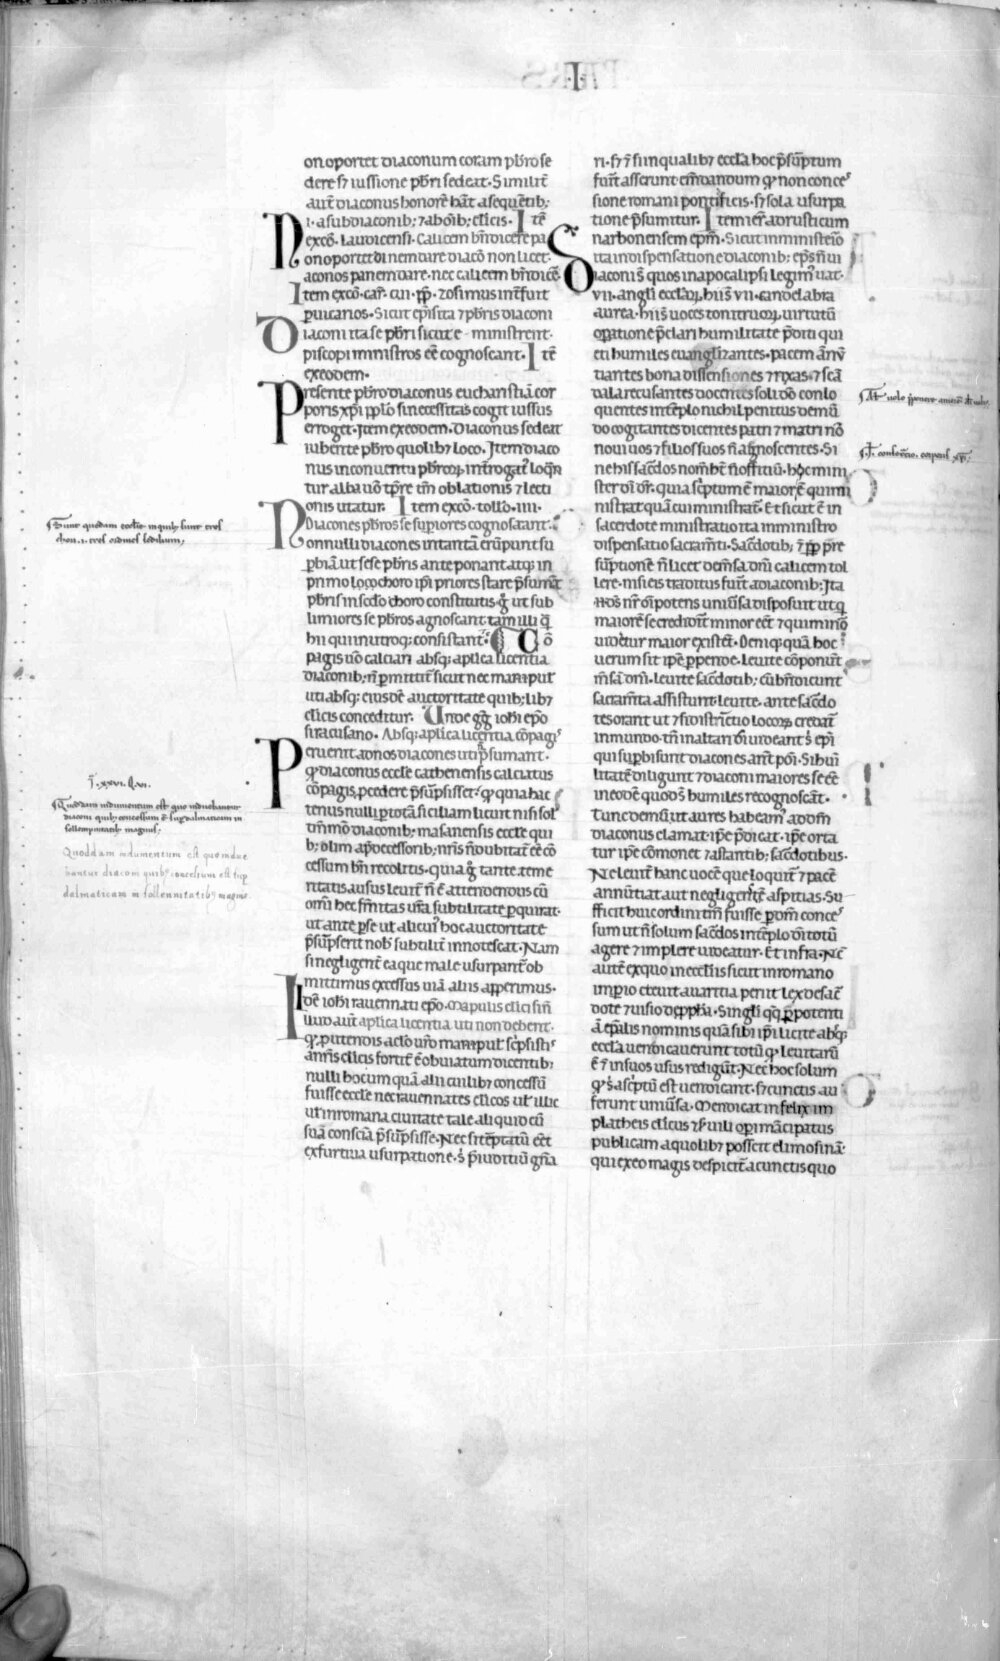 ·I·
on oportet diaconum coram pb̄ro se
dere sꝫ iussione pb̄ri sedeat· Similit̄
aut̄ diaconus honorē hāt a seq̄ētib;
i· a subdiaconib; ⁊ ab oīb; cl̄icis· Itē
ex cō· Laudicensi· Calicem bn̄dicere pa
N on oportet
aconos panem dare· nec calicem bn̄dicē·
Item ex cō· car̄·
Sicut ep̄i ita ⁊ pb̄ris diaconi
D iaconi ita se pb̄ri sicut e· ministrent·
piscopi ministros eē cognoscant· Itē
ex eodem·
P resente pb̄ro diaconus eucharistiā cor
poris xp̄i pp̄lo si necessitas cogit iussus
erroget· Item ex eodem· Diaconus sedeat
iubente pb̄ro quolibꝫ loco· Item diaco
nus in conventu pb̄roꝝ int̄rogat᷒ loq̄
tur alba uō tp̄re tm̄ oblationis ⁊ lecti
onis utatur· Item ex cō· tollō· iiii·
Diacones pb̄ros se suꝑiores cognoscant·
N onnulli diacones in tantā erūpunt su
ꝑbiā ut sese pb̄ris ante ponant atq; in
primo loco choro ip̄i priores stare p̄sumāt
pb̄ris in sc̄do choro constitutis· ḡ ut sub
limiores se pb̄ros agnoscant· tam illi q̄
hii qui in utroq; consistant· Cō
pagis uō calciari absq; aplica licentia
diaconib; n̄ ꝑmittit᷒ sicut nec mapul᷒
uti absq; eiusdē auctoritate quib;libꝫ
cl̄icis conceditur· Unde gḡ ioh̄i ep̄o
siracusano· Absq; aplica licentia cōpagi᷒
P eruenit ad nos diacones uti p̄sumant·
qꝫ diaconus eccl̄e cathenensis calciatus
cōpagis ꝓcedere p̄sūpsisset· qꝫ quia hac
tenus nulli ꝑ totā siciliam licuit nisi sol᷒
tm̄mō diaconib; masanensis eccl̄e qui
b; olim a p̄decessorib; n̄ris n̄ dubitat̄ eē cō
cessum bn̄ recolitis· quia ḡ tante teme
ritatis ausus leuit᷒ n̄ ē attendendus cū
om̄i hec sm̄itas ur̄a subtilitate ꝑquirat·
ut an te ꝑ se ut alicui᷒ hoc auctoritate
p̄sūpserit nob̄ subtilit̄ innotescat· Nam
si negligent̄ ea que male usurpant᷒ ob
mittimus excessus uiā aliis apperimus·
I dē ioh̄i rauennati ep̄o· Mapulis cl̄ici sin̄
illud aut̄ aplica licentia uti non debent·
qꝫ putendis
anr̄is cl̄icis fortit̄ ē obuiatum dicentib;
nulli hoc um quā alii cuilibꝫ concessū
fuisse eccl̄e nec rauennates cl̄icos ul᷒ illic
ul᷒ in romana ciuitate tale aliquid cū
suā consciā p̄sūpsisse· Nec si tēptatū eēt
ex furtiua usurpatione· s; p̄iuditiū gn̄a
ri· sꝫ ⁊ si in qualibꝫ eccl̄a hoc p̄sūptum
fuit̄ asserunt em̄dandum qꝫ non conce᷒
sione romani pontificis· sꝫ sola usurpa
tione p̄sumitur· Item ier̄ ad rusticum
narbonensem ep̄m· Sicut in ministeīo
S ita in dispensatione diaconib; ep̄s n̄ ui
D iaconis; quos in apocalipsi legim᷒ uat·
vii· angli eccl̄aꝝ, hii s; vii· candelabra
aurea· hii s; uoces tonitruoꝝ, uirtutū
oꝑatione p̄clari humilitate p̄diti qui
eti humiles euanglizantes· pacem ānū
tiantes bona· dissensiones ⁊ rixas· ⁊ scā
dala recusantes docentes soli dō conlo
quentes in tēplo nichil penitus de mū
do cogitantes dicentes patri ⁊ matri nō
noui uos ⁊ filios suos n̄ agnoscentes· Si
ne his sacdos nom̄ hēt n̄ offitiū· hꝫ c̄ mini
ster dī d̄r· quia sc̄ptum ē maiorē qui mi
nistrat quā cui ministrat᷒· Et sicut ē in
sacerdote ministratio ita in ministro
dispensatio sacram̄ti· Sac̄dotib; ⁊ ꝓpp̄ p̄re
sūptionē n̄ licet de m̄sa dn̄i calicem tol
lere· nisi eis traditus fuit̄ a diaconib; Ita
nōs n̄r oīpotens uniūsa disposuit ut q̄
maiorē se credidit̄ minor eet̄ ⁊ qui minō
uidetur maior existet· Deniq; quā hoc
uerum sit ip̄e ꝑpende· Leuite cōponūt
m̄sā dn̄i· leuite sac̄dotib; cū bn̄dicunt
sacram̄ta assistunt· leuite· ante sac̄do
tes orant ut ⁊ si distinctio locoꝝ credat̄
in mundo· tn̄ in altari dn̄i uideant᷒ s; ep̄i
qui suꝑbi sunt diacones ant̄ pōi· Si hui᷒
litatē diligunt ⁊ diaconi maiores se eē
in eodē quod s; humiles recognoscāt·
Tunc demū ut aures habeam᷒ ad dn̄m
diaconus clamat· ip̄e p̄dicat· ip̄e orta
tur ip̄e cōmonet ⁊ astantib; sac̄dotibus·
Ne leuit̄ hanc uocē que loquit᷒ ⁊ pacē
annūtiat aut negligent̄ aspitias· Su
fficit huic ordini tm̄ fuisse ꝑ dn̄m conce᷒
sum ut n̄ solum sac̄dos in tēplo dn̄i totū
agere ⁊ implere uideatur· Et infra· Nē
autē ex quo in eccl̄iis sicut in romano
imꝑio creuit auaritia periit lex de sac̄
dote ⁊ uisio de ꝓph̄a· Singl̄i q̄q̄ ꝑ potenti
ā ep̄alis nominis quā sibi ip̄i licite absq;
eccl̄a uendicauerunt totū qꝫ leuitarū
ē ⁊ in suos usus redigūt· Nec hoc solum
qꝫ s; asc̄ptū est uendicant· sꝫ cunctis au
ferunt uniūsa· Mendicat infelix in
plateis cl̄icus ⁊ s̄uili oꝑi mācipatus
publicam a quolibꝫ possc̄it elimosinā·
qui ex eo magis despicit᷒ a cunctis quo
Sunt quedam ecclē in quibꝫ sunt tres
chori· i· tres ordines sedilium;
xxvi· q̄ vi·
Quoddam indumentum est quo induebantur
diaconi quibꝫ concessum ē sup̄ dalmaticam in
sollempnitatibꝫ magnis;
Quoddam indumentum est quo indue
bantur diaconi quib᷒ concessum est sup
dalmaticam in sollennitatib᷒ magnis·